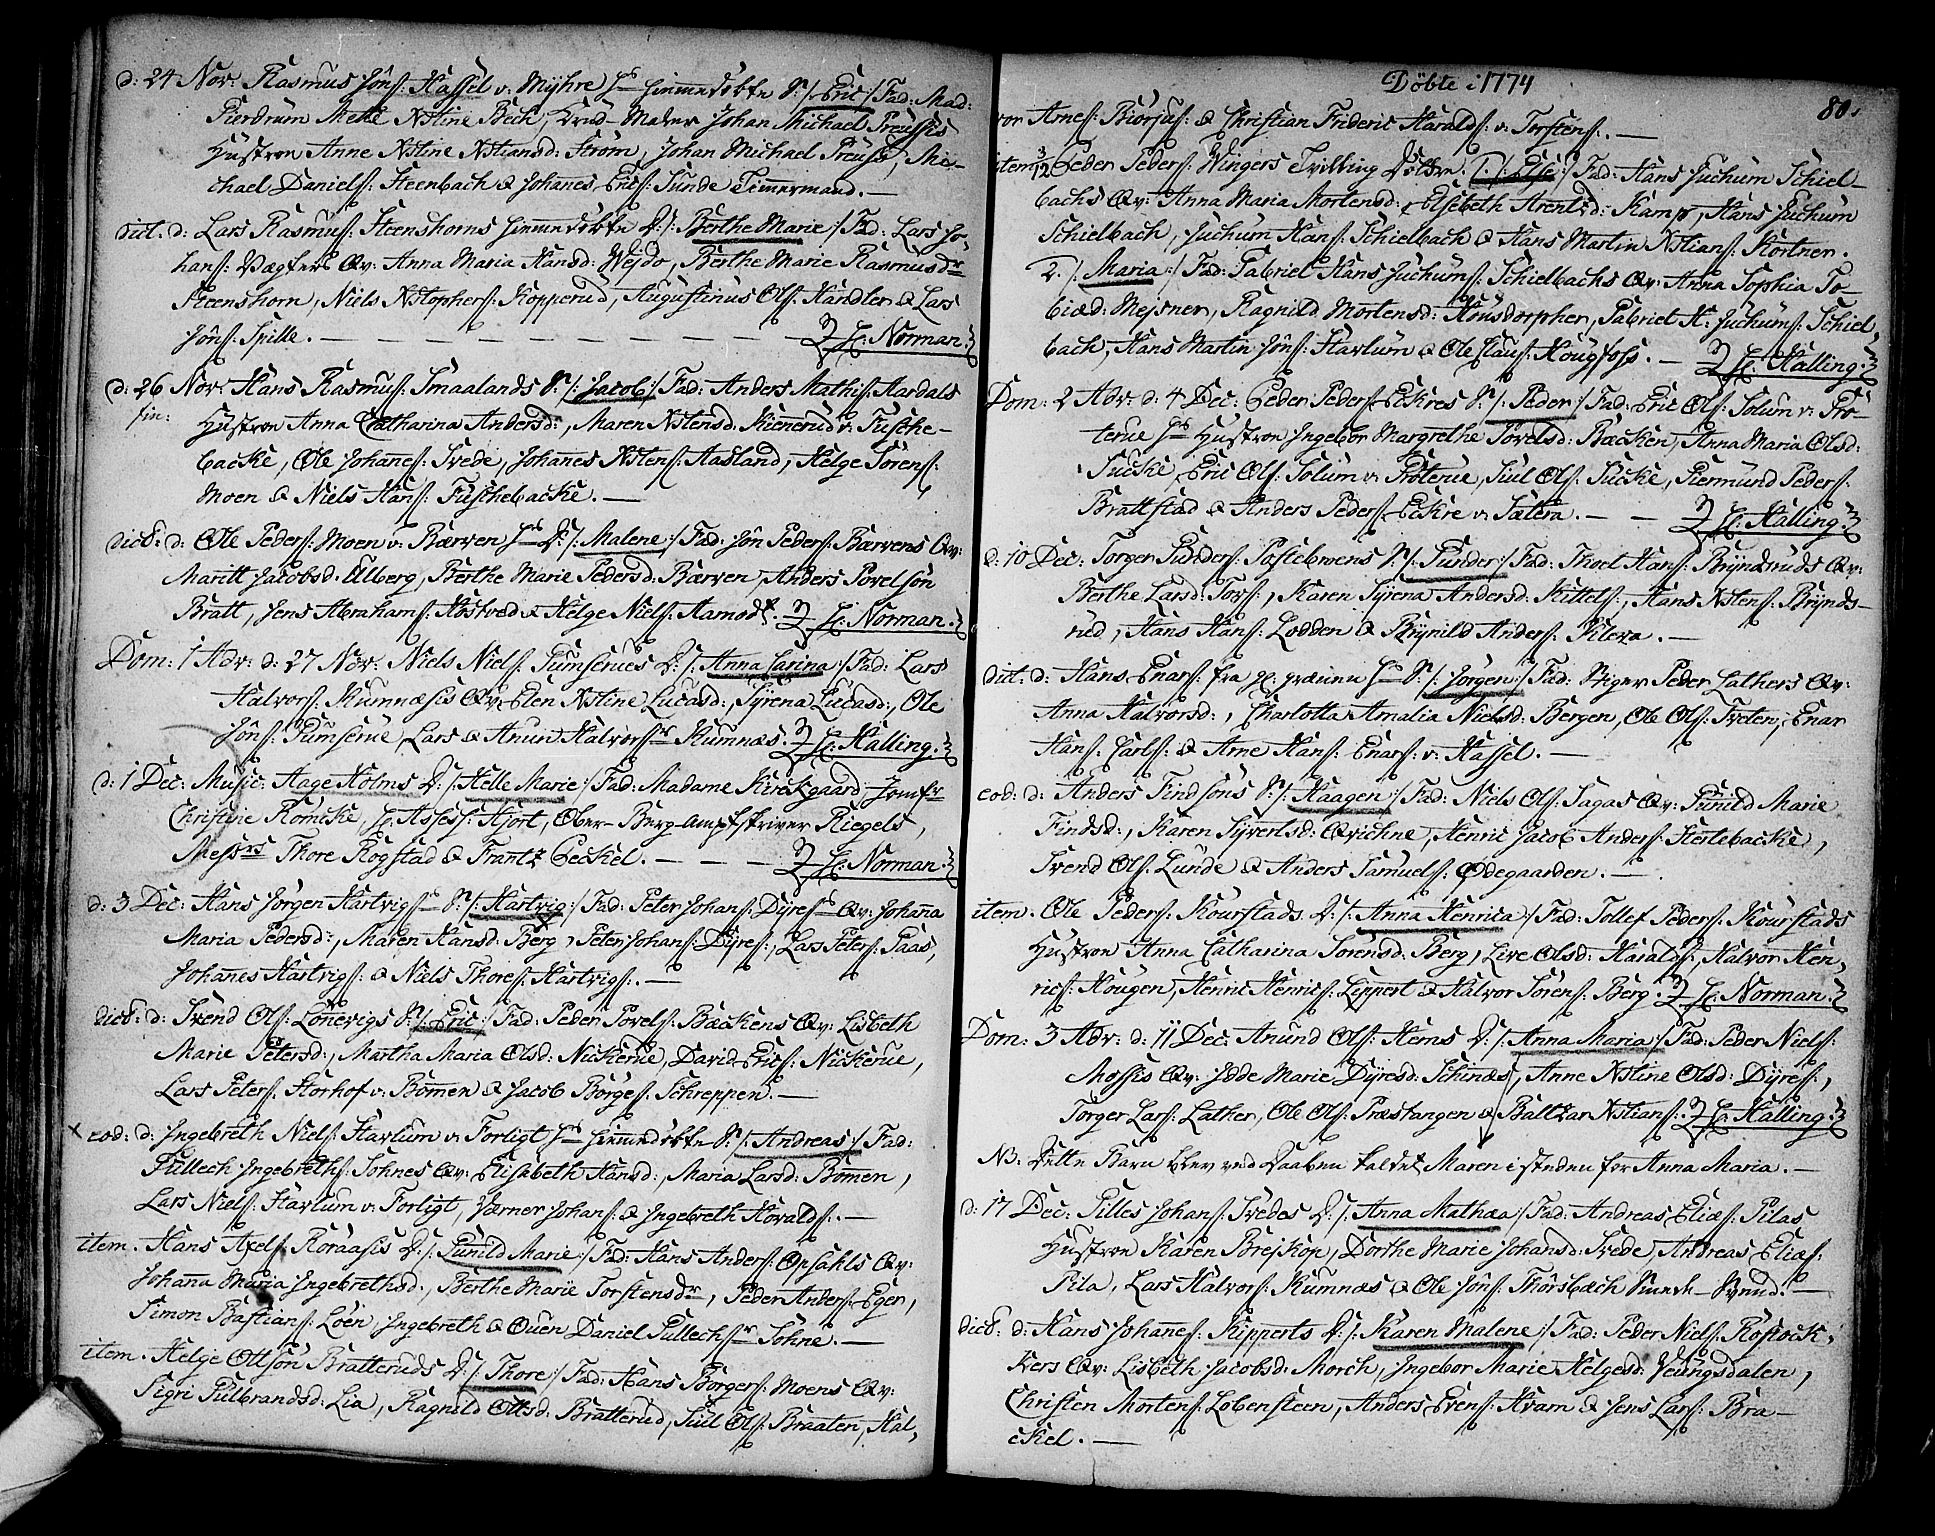 d: 24 Nov: Rasmus Jøns: Hassel v: Myhre hs hiemmedøbte S: /: Eric :/ Fad: Mad:
Mette Nstine Bech, Johan Michael Preussis
Hustroe Anne Nstine Nstiansd: Strøm, Johan Michael Preuss, Mi-
chael Daniels: Steenbach & Johanes Erics: Sunde Timmermand. —
dict. d: Lars Rasmus: Steenshorns hiemmedøbte D: /: Berthe Marie :/ Fad: Lars Jo-
hans: Vægters Qv: Anna Maria Hansd: Wejdo, Berthe Marie Rasmusdr
Steenshorn, Niels Nstophers: Kopperud, Augustinus Ols: Handler & Lars
Jøns: Spille. — Hr: Norman.
d: 26 Nov: Hans Rasmus: Smaalands S: /: Jacob :/ Fad: Anders Mathis: Aardals
Hustroe Anna Catharina Andersd:, Maren Nstensd: Kienerud v: Fuske-
backe, Ole Johanes: Svede, Johanes Nstens: Aasland, Helge Sørens:
Moen & Niels Hans: Fuskebacke. —
dict: d: Ole Peders: Moen v: Bærven hs D: /: Malene :/ Fad: Jøn Peders: Bærvens Qv:
Maritt Jacobsd: Ulberg, Berthe Marie Pedersd: Bærven, Anders Povelsøn
Bratt, Jens Abrahams: Høstved & Helge Niels: Aamodt. Hr: Norman.
Dom: 1 Adv: d: 27 Nov: Niels Niels: Gumserues D: /: Anna Carina :/ Fad: Lars
Halvors: Rumnæsis Qv: Elen Nstine Lucasd:, Syrena Lucasd:, Ole
Jøns: Gumserue, Lars & Anun Halvorssr Rumnæs. Hr: Halling.
d: 1 Dec: Music: Aage Holms D: /: Helle Marie :/ Fad: Madame Kirckgaard, Jomfr
Christine Rømcke, Hr Assess: Hjort, Ober-Berg-Ampt-skriver Riegels,
Messrs Thore Rogstad & Frantz Beckel. — Hr: Norman.
d: 3 Dec: Hans Jørgen Hartvigs: S: /: Hartvig :/ Fad: Peter Johans: Dyres Qv: Johana
Maria Pedersd:, Maren Hansd: Berg, Peter Johans: Dyres:, Lars Peters: Paas,
Johanes Hartvigs: & Niels Thores: Hartvigs:. —
dict: d: Svend Ols: Lønevigs S: /: Eric :/ Fad: Peder Povels: Bæckens Qv: Lisbeth
Marie Petersd:, Martha Maria Olsd: Nickerue, David Erics: Nickerue,
Lars Peters: Storhof v: Bommen & Jacob Børges: Schreppen. —
x eod: d: Ingebreth Niels: Havlum v: Forligt hs hiemmedøbte S: /: Andreas :/ Fad:
Gullech Ingebreths: Sohnes Qv: Elisabeth Hansd:, Maria Larsd: Bommen,
Lars Niels: Havlum v: Forligt, Verner Johans: & Ingebreth Hovalds:. —
item. Hans Axels: Roraasis D: /: Gunild Marie :/ Fad: Hans Anders: Opsahls Qv:
Johana Maria Ingebrethsd:, Berthe Marie Torstensdr, Peder Anders: Eger,
Simon Bastians: Løen, Ingebreth & Ouen Daniel Gullechssr Sohne. —
item. Helge Ottsøn Bratteruds D: /: Thore :/ Fad: Hans Børgers: Moens Qv:
Sigri Gulbrandsd: Lia, Ragnild Ottsd: Bratterud, Juul Ols: Braaten, Hal-
Døbte i 1774
80.
vor Arnes: Biorjus: & Christian Frideric Haralds: v: Torstens:. —
item Peder Peders: Wingers Tvilling Døttre. 1. /: Else :/ Fad: Hans Juchum Schiel-
bachs Qv: Anna Maria Mortensd:, Elsebeth Arentsd: Kamp, Hans Juchum
Schielbach, Juchum Hans: Schielbach & Hans Martin Nstians: Kortner.
2. /: Maria :/ Fad: Gabriel Hans Juchums: Schielbachs Qv: Anna Sophia To-
biæd: Mejsner, Ragnild Mortensd: Hønsdorpher, Gabriel H: Juchums: Schiel-
bach, Hans Martin Jøns: Havlum & Ole Claus: Hougfoss. — Hr: Halling.
Dom: 2 Adv: d: 4 Dec: Peder Peders: Eckres S: /: Peder :/ Fad: Eric Ols: Solum v: Pro-
terue hs Hustroe Ingebor Margrethe Povelsd: Bæcken, Anna Maria Olsd:
Sucke, Eric Ols: Solum v: Proterue, Juul Ols: Sucke, Giermund Peders:
Brattstad & Anders Peders: Eckre v: Sætera. — Hr: Halling.
d: 10 Dec: Torger Gunders: Postelmens S: /: Gunder :/ Fad: Thoel Hans: Bryndsruds Qv:
Berthe Larsd: Tors:, Karen Syrena Andersd: Kittels:, Hans Nstens: Brynds-
rud, Hans Hans: Lodden & Brynild Anders: Kleva. —
dict: d: Hans Enars: fra hs S: /: Jørgen :/ Fad: Stiger Peder Lathers Qv:
Anna Halvorsd:, Charlotta Amalia Nielsd: Bergen, Ole Ols: Tveten, Enar
Hans: Carls: & Arne Hans: Enars: v: Hassel. —
eod: d: Anders Findsøns S: /: Haagen :/ Fad: Niels Ols: Sagas Qv: Gunild Marie
Findsd:, Karen Syvertsd: Qvichne, Henric Jacob Anders: Hertebacke,
Svend Ols: Lunde & Anders Samuels: Ødegaarden. —
item. Ole Peders: Kourstads D: /: Anna Henrica :/ Fad: Tollef Peders: Kourstads
Hustroe Anna Catharina Sørensd: Berg, Live Olsd: Haralds:, Halvor Hen-
rics: Hougen, Henric Henrics: Lippert & Halvor Sørens: Berg. Hr: Norman.
Dom: 3 Adv: d: 11 Dec: Anund Ols: Hems D: /: Anna Maria :/ Fad: Peder Niels:
Mossis Qv: Jdde Marie Dyresd: Schinæs, Anne Nstine Olsd: Dyres:,
Torger Lars: Lather, Ole Ols: Præstangen & Baltzar Nstians:. Hr: Halling.
NB: Dette Barn blev ved Daaben kaldet Maren i steden for Anna Maria. —
d: 17 Dec: Gilles Johans: Svedes D: /: Anna Mathea :/ Fad: Andreas Elias: Pilas
Hustroe Karen Brejskop, Dorthe Marie Johansd: Svede, Andreas Elias:
Pila, Lars Halvors: Rumnæs & Ole Jøns: Thorsbach Smeede-Svend. —
dict: d: Hans Johanes: Kipperts D: /: Karen Malene :/ Fad: Peder Niels: Rostock-
kers Qv: Lisbeth Jacobsd: Morch, Ingebor Marie Helgesd: Veungsdalen,
Christen Mortens: Lobensteen, Anders Evens: Hvam & Jens Lars: Bra-
ckel. —